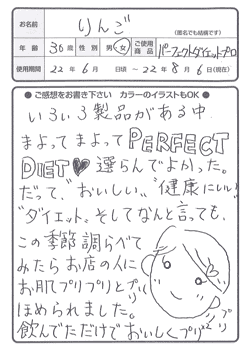 お名前 りんご
(匿名でも結構です)
年齢 36歳 性別 男・女 ご使用商品 パーフェクトダイエットプロ
使用期間 22年6月 日頃 ~ 22年8月6日(現在)
●ご感想をお書き下さい カラーのイラストもOK●
いろいろ製品がある中
まよってまよってPERFECT
DIET♥選らんでよかった。
だって、"おいしい" "健康にいい"
"ダイエット"、そしてなんと言っても、
この季節調らべて
みたらお店の人に
お肌プリプリと
ほめられました。
飲んでただけでおいしくプリプリ
プリ
プリ